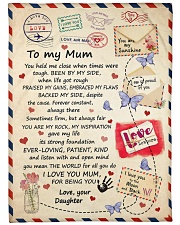 WITH
LOVE
LOVE AIR MAIL
To my Mum
You are my
Sunshine
You held me close when times were
tough. BEEN BY MY SIDE,
when life got rough
PRAISED MY GAINS, EMBRACED MY FLAWS
BACKED MY SIDE, despite
the cause. Forever constant,
always there
Sometimes firm, but always fair
YOU ARE MY ROCK, MY INSPIRATION
gave my life
its strong foundation
EVER-LOVING, PATIENT, KIND
and listen with and open mind
you mean THE WORLD for all you do
I LOVE YOU MUM,
FOR BEING YOU
Love, your
Daughter
proud of you
Love